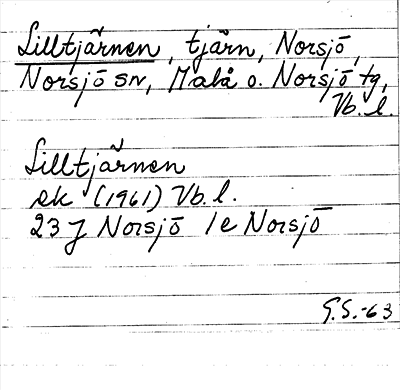 Lilltjärnen, tjärn, Norsjö,
Norsjö sn, Malå o. Norsjö tg,
Vb. l.
Lilltjärnen
ek (1961) Vb. l.
23 J Norsjö 1e Norsjö
G.S.-63